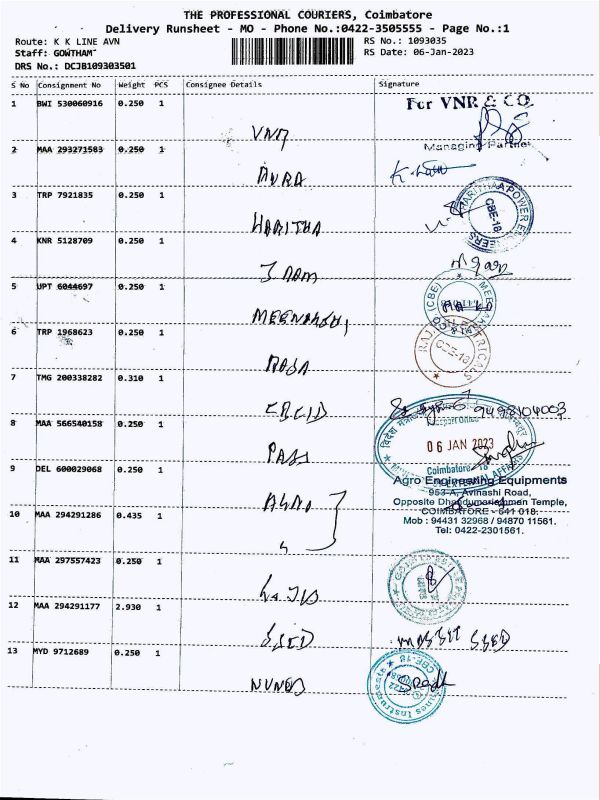 THE PROFESSIONAL COURIERS, Coimbatore
Delivery Runsheet - MO - Phone No.:0422-3505555 - Page No.:1
Route: K K LINE AVN
RS No.: 1093035
Staff: GOWTHAM
RS Date: 06-Jan-2023
DRS No.: DCJB109303501
S No Consignment No Weight PCS Consignee Details Signature
1 BWI 530060916 0.250 1 For VNR & CO.
VNR
Managing Partner
2 MAA 293271583 0.250 1
3 TRP 7921835 0.250 1
HARITHA POWER ENGINEERS
CBE-18
HARITHA
4 KNR 5128709 0.250 1
5 UPT 6044697 0.250 1
(CBE)
MEENAKSHI
6 TRP 1968623 0.250 1
CBE-18
RAJA
7 TMG 200338282 0.310 1
CBCID
9498104003
8 MAA 566540158 0.250 1
06 JAN 2023
PASS
Coimbatore 18
EXTERNAL AFFAIRS
9 DEL 600029068 0.250 1
Agro Engineering Equipments
953-A, Avinashi Road,
AGRO
Opposite Dhandumariamman Temple,
10 MAA 294291286 0.435 1
COIMBATORE - 641 018.
Mob : 94431 32968 / 94870 11561.
Tel: 0422-2301561.
11 MAA 297557423 0.250 1
12 MAA 294291177 2.930 1
SEED
SEED
13 MYD 9712689 0.250 1
CBE-18